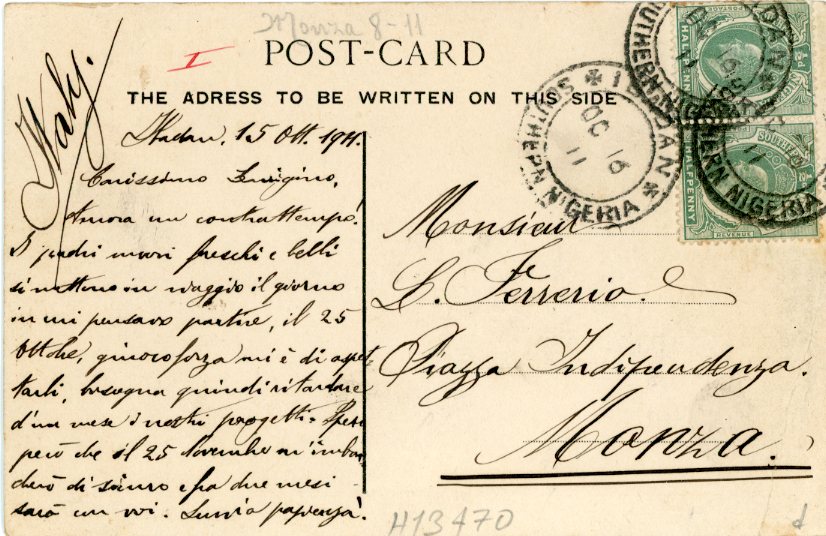 Monza 8-11
I
POST-CARD
THE ADRESS TO BE WRITTEN ON THIS SIDE
Italy.
HALFPENNY
HALFPENNY
SOUTHERN
REVENUE
IBADAN
OC 16
11
SOUTHERN NIGERIA
Ibadan, 15 Ott. 1911.
Carissimo Luigino,
Ancora un contrattempo!
I padri nuovi freschi e belli
si mettono in viaggio il giorno
in cui pensavo partire, il 25
Ottobre, giuocoforza mi è di aspet-
tarli, bisogna quindi ritardare
d'un mese i nostri progetti. Spero
però che il 25 Novembre m'imbar-
cherò di sicuro e fra due mesi
sarò con voi.
Monsieur
L. Ferrerio.
Piazza Indipendenza.
Monza.
H13470
d